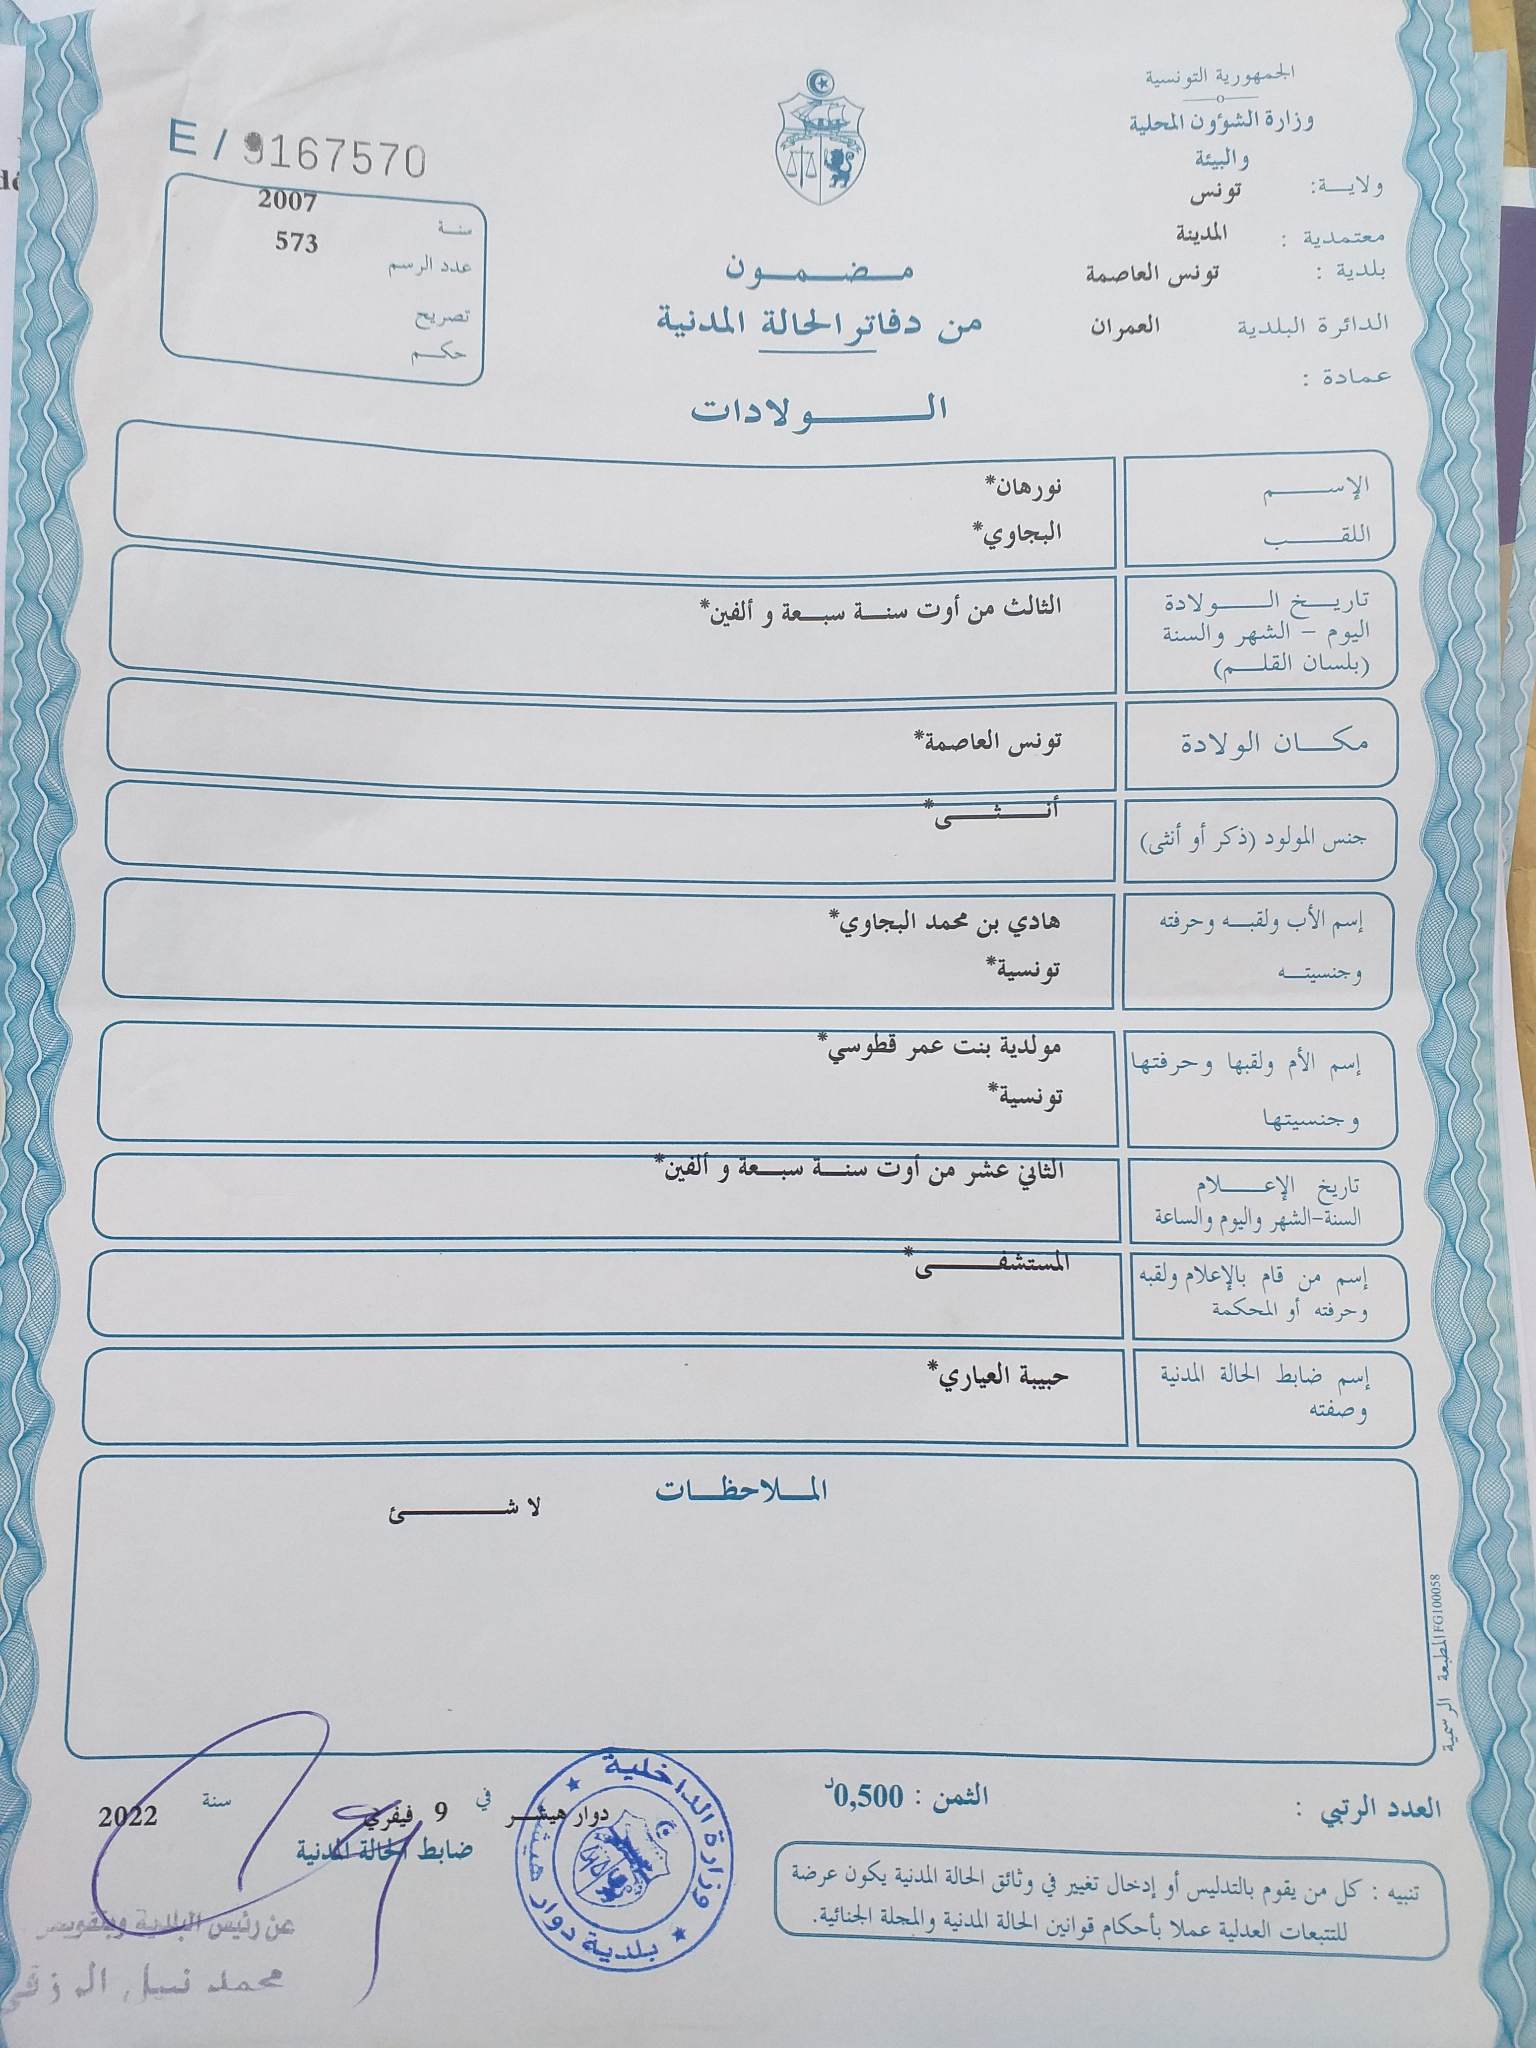 الجمهورية التونسية
وزارة الشؤون المحلية
والبيئة
ولاية: تونس
معتمدية : المدينة
بلدية : تونس العاصمة
الدائرة البلدية العمران
عمادة :
E / 9167570
سنة 2007
عدد الرسم 573
تصريح
حكم
مضمون
من دفاتر الحالة المدنية
الولادات
الإسم نورهان*
اللقب البجاوي*
تاريخ الولادة
اليوم - الشهر والسنة
(بلسان القلم)
الثالث من أوت سنة سبعة و ألفين*
مكان الولادة تونس العاصمة*
جنس المولود (ذكر أو أنثى) أنثى*
إسم الأب ولقبه وحرفته هادي بن محمد البجاوي*
وجنسيته تونسية*
إسم الأم ولقبها وحرفتها مولدية بنت عمر قطوسي*
وجنسيتها تونسية*
تاريخ الإعلام
السنة-الشهر واليوم والساعة
الثاني عشر من أوت سنة سبعة و ألفين*
إسم من قام بالإعلام ولقبه
وحرفته أو المحكمة
المستشفى*
إسم ضابط الحالة المدنية
وصفته
حبيبة العياري*
الملاحظات
لا شئ
المطبعة الرسمية FG100058
العدد الرتبي :
الثمن : 0,500د
دوار هيشر في 9 فيفري سنة 2022
ضابط الحالة المدنية
وزارة الداخلية
بلدية دوار هيشر
تنبيه : كل من يقوم بالتدليس أو إدخال تغيير في وثائق الحالة المدنية يكون عرضة
للتتبعات العدلية عملا بأحكام قوانين الحالة المدنية والمجلة الجنائية.
عن رئيس البلدية
محمد نبيل